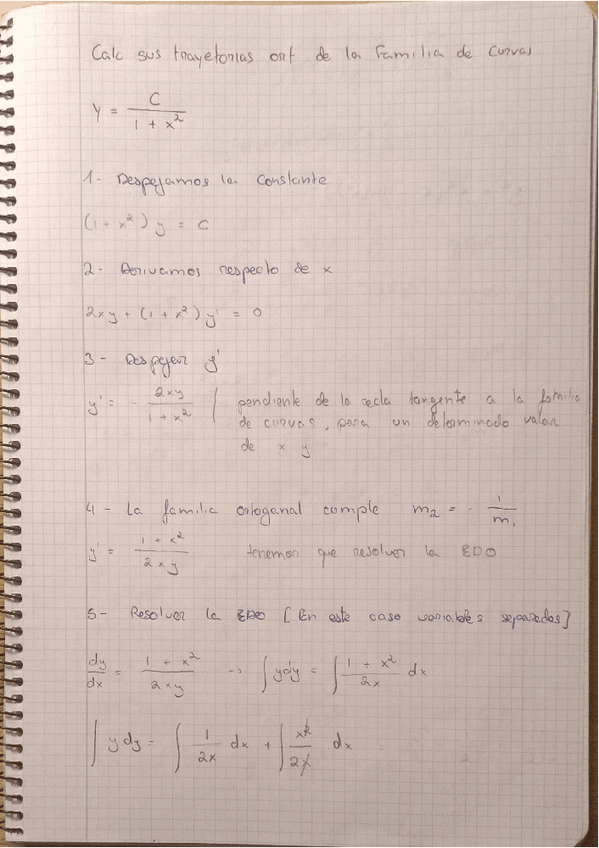 Calc sus trayetorias ort de la familia de curvas
y = C / (1 + x²)
1- Despejamos la constante
(1 + x²) y = C
2- Derivamos respecto de x
2xy + (1 + x²) y' = 0
3- Despejar y'
y' = - 2xy / (1 + x²) | pendiente de la recta tangente a la familia
de curvas, para un determinado valor
de x y
4- La familia ortogonal cumple m₂ = - 1 / m₁
y' = (1 + x²) / (2xy) tenemos que resolver la EDO
5- Resolver la EDO [En este caso variables separadas]
dy/dx = (1 + x²) / (2xy) -> ∫ y dy = ∫ (1 + x²) / (2x) dx
∫ y dy = ∫ 1 / (2x) dx + ∫ x² / (2x) dx